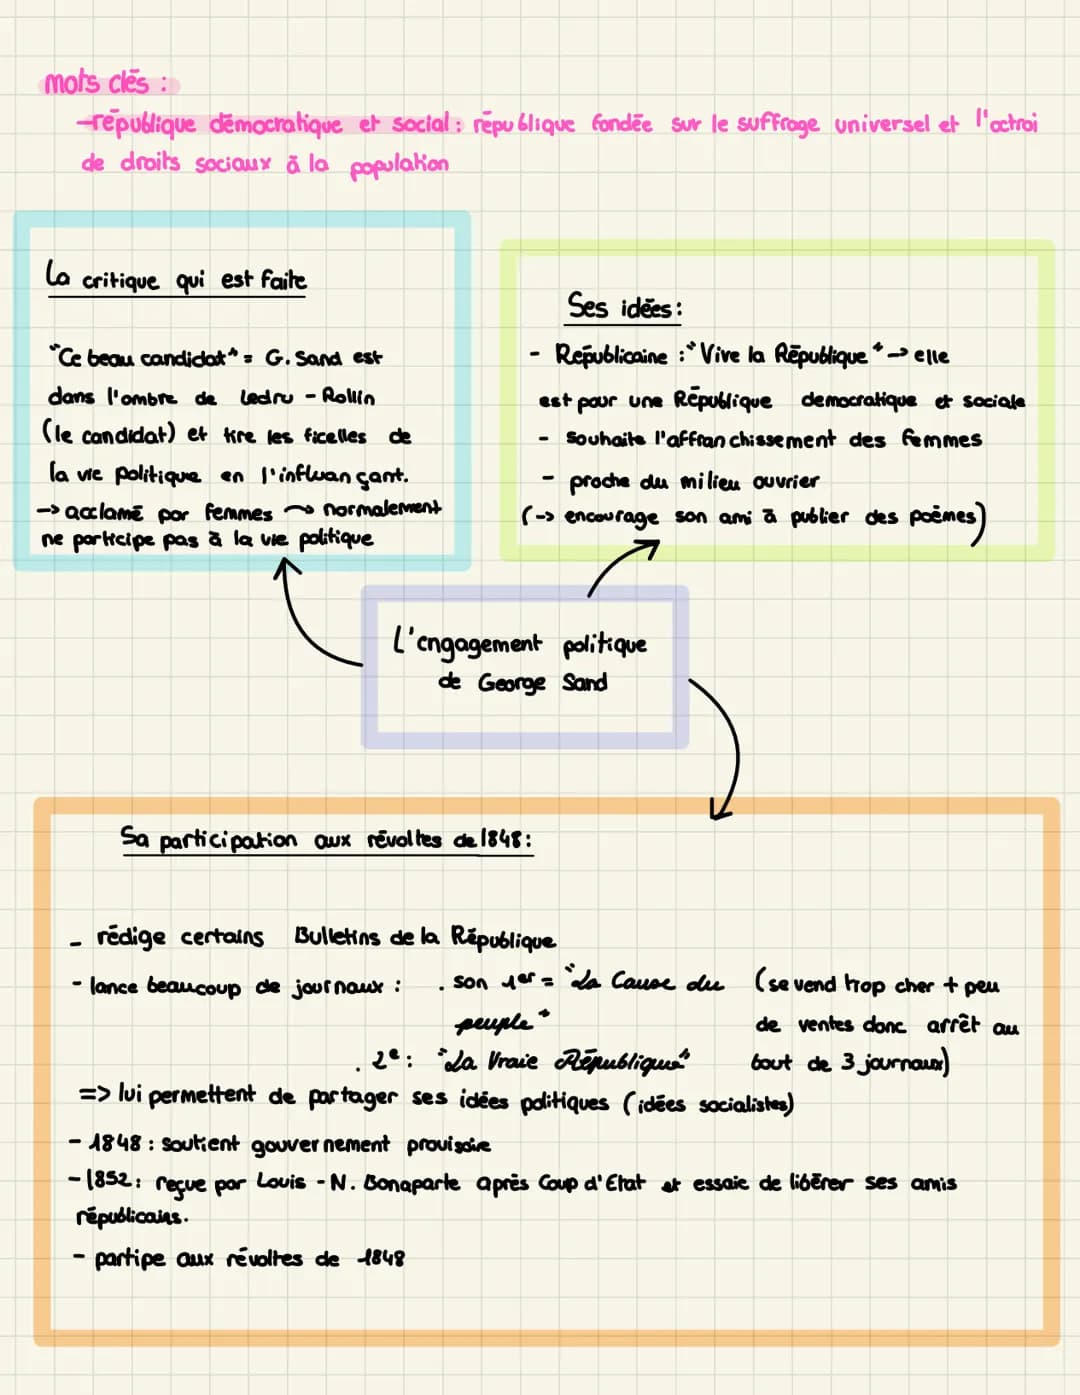 mots clés :
→république démocratique et social : république fondée sur le suffrage universel et l'octroi
de droits sociaux à la population
La critique qui est faite
"Ce beau candidat" = G. Sand est
dans l'ombre de Ledru - Rollin
(le candidat) et tire les ficelles de
la vie politique en l'influançant.
-> acclamé par femmes ~> normalement
ne participe pas à la vie politique
Ses idées :
- Républicaine : "Vive la République" -> elle
est pour une République democratique et sociale
- souhaite l'affranchissement des femmes
- proche du milieu ouvrier
(-> encourage son ami à publier des poèmes)
L'engagement politique
de George Sand
Sa participation aux révoltes de 1848 :
- rédige certains Bulletins de la République
- lance beaucoup de journaux : . son 1er = "La Cause du (se vend trop cher + peu
peuple" de ventes donc arrêt au
. 2e : "La Vraie République" bout de 3 journaux)
=> lui permettent de partager ses idées politiques (idées socialistes)
- 1848 : soutient gouvernement provisoire
- 1852 : reçue par Louis - N. Bonaparte après Coup d'Etat et essaie de libérer ses amis
républicains.
- partipe aux révoltes de 1848